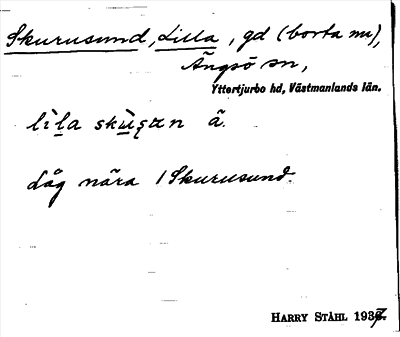 Skurusund, Lilla, gd (borta nu),
Ängsö sn,
Yttertjurbo hd, Västmanlands län.
lìla skùsan ä.
Låg nära 1 Skurusund.
HARRY STÅHL 1937.